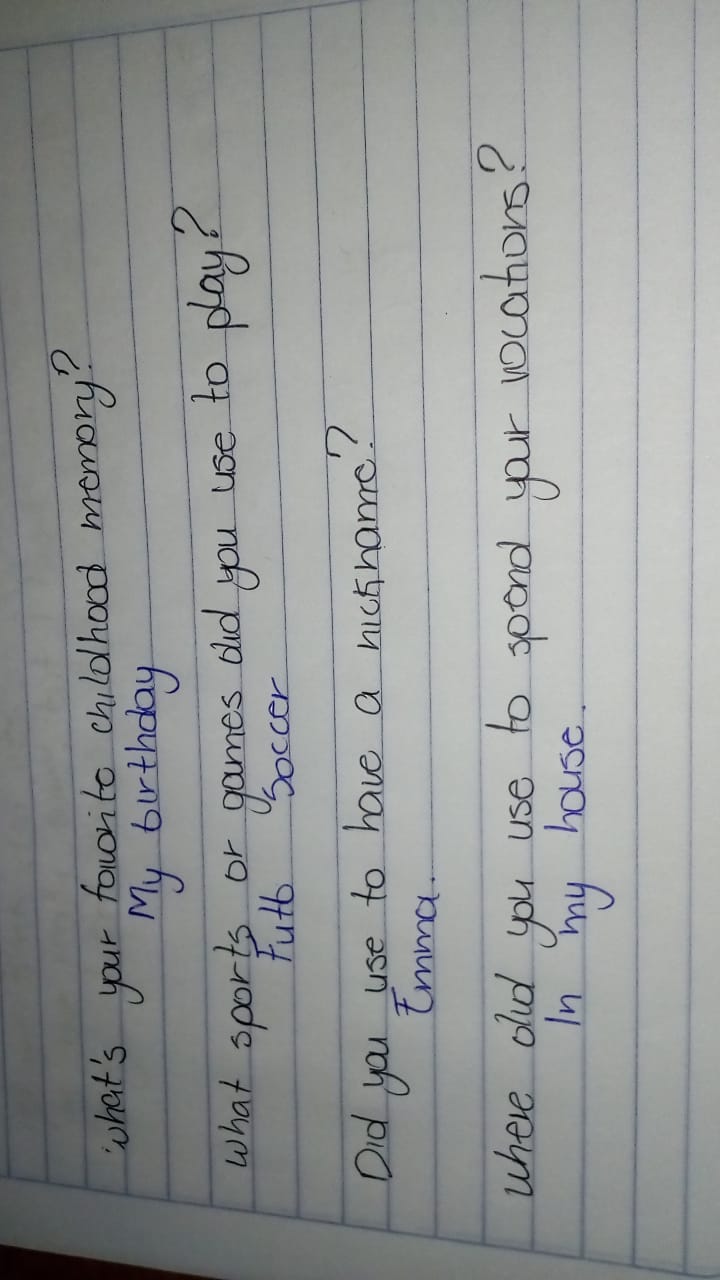 what's your favorite childhood memory?
My birthday
what sports or games did you use to play?
Futb Soccer
Did you use to have a nickname?
Emma.
where did you use to spend your vocations?
In my house.